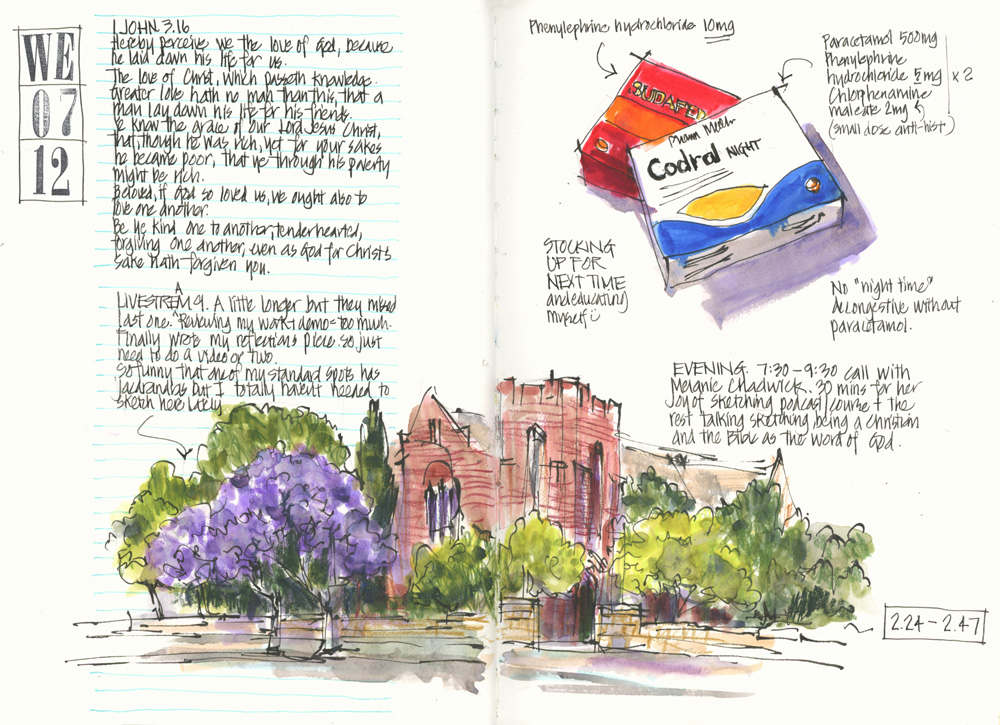 WE
07
12
1 JOHN 3.16
Hereby perceive we the love of God, because
he laid down his life for us.
The love of Christ, which passeth knowledge.
Greater love hath no man than this, that a
man lay down his life for his friends.
Ye know the grace of our Lord Jesus Christ,
that, though he was rich, yet for your sakes
he became poor, that ye through his poverty
might be rich.
Beloved, if God so loved us, we ought also to
love one another.
Be ye kind one to another, tenderhearted,
forgiving one another, even as God for Christ's
sake hath forgiven you.
LIVESTREAM 9. A little longer but they missed
last one. Reviewing my work + demo = too much.
Finally wrote my reflections piece. so just
need to do a video or two.
So funny that one of my standard spots has
jacarandas but I totally haven't needed to
sketch here lately
Phenylephrine hydrochloride 10mg
SUDAFED
Pharm
Codral NIGHT
Paracetamol 500mg
Phenylephrine
hydrochloride 5mg
Chlorphenamine
maleate 2mg
(small dose anti-hist)
x 2
STOCKING
UP FOR
NEXT TIME
and educating
myself
No "night time"
decongestive without
paracetamol.
EVENING. 7:30 - 9:30 call with
Melanie Chadwick. 30 mins for her
Joy of Sketching podcast/course + the
rest talking sketching, being a Christian
and the Bible as the word of God.
2.24 - 2.47